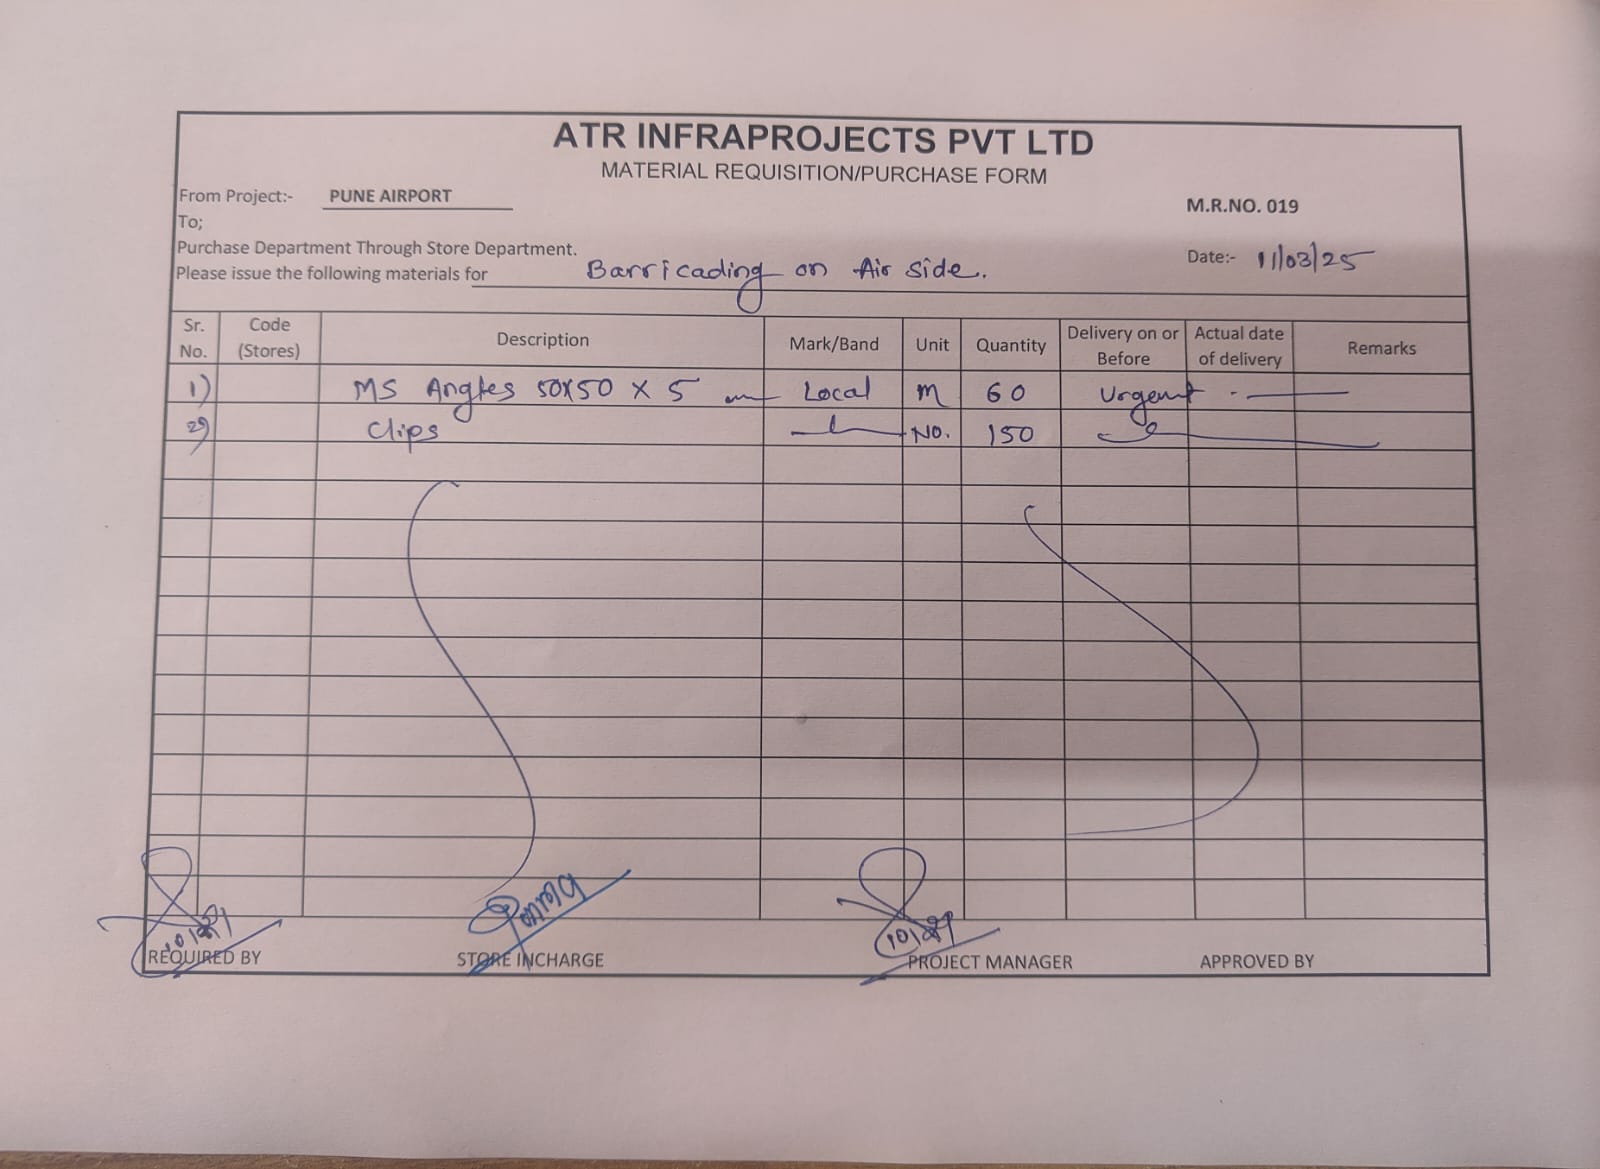 ATR INFRAPROJECTS PVT LTD
MATERIAL REQUISITION/PURCHASE FORM
From Project:- PUNE AIRPORT
M.R.NO. 019
To;
Purchase Department Through Store Department.
Date:- 11/03/25
Please issue the following materials for Barricading on Air side.
Sr. No. Code (Stores) Description Mark/Band Unit Quantity Delivery on or Before Actual date of delivery Remarks
1) MS Angles 50X50 X 5 mm Local m 60 Urgent
2) Clips No. 150
REQUIRED BY STORE INCHARGE PROJECT MANAGER APPROVED BY